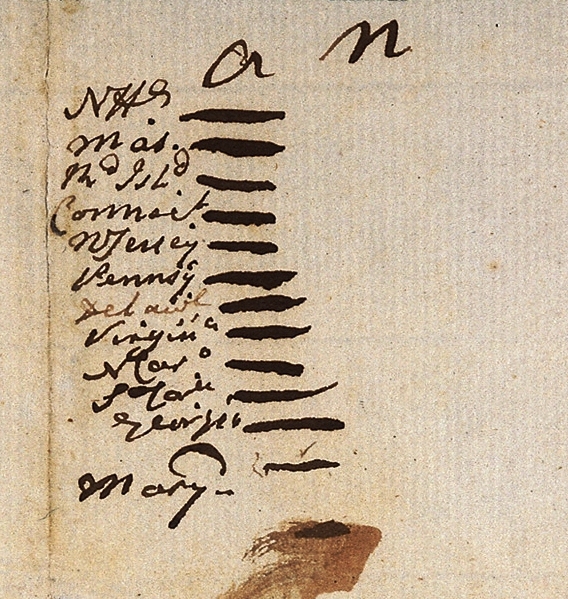 a n
NHa
Mas.
Rd Isld
Connect
NJersey
Pennsa
Delawe
Virginia
NCaro
SCaro
Georgia
Mary.